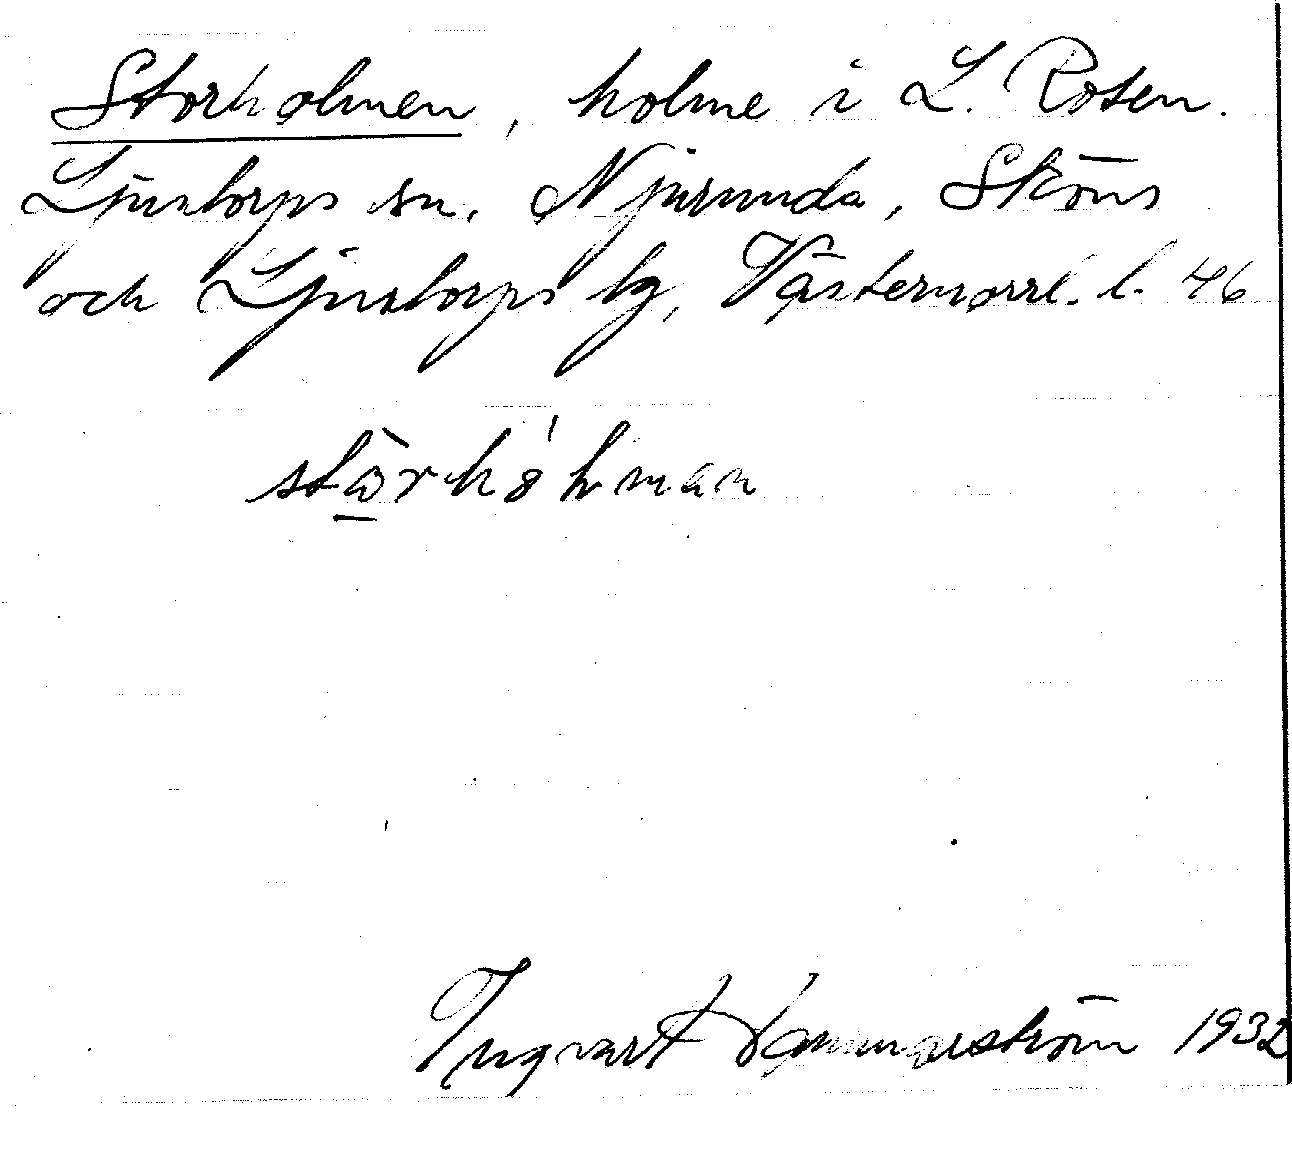 Storholmen, holme i L. Roten.
Ljustorps sn. Njurunda, Sköns
och Ljustorps tg, Västernorrl. l. 46
Ingvart Hammarström 1932